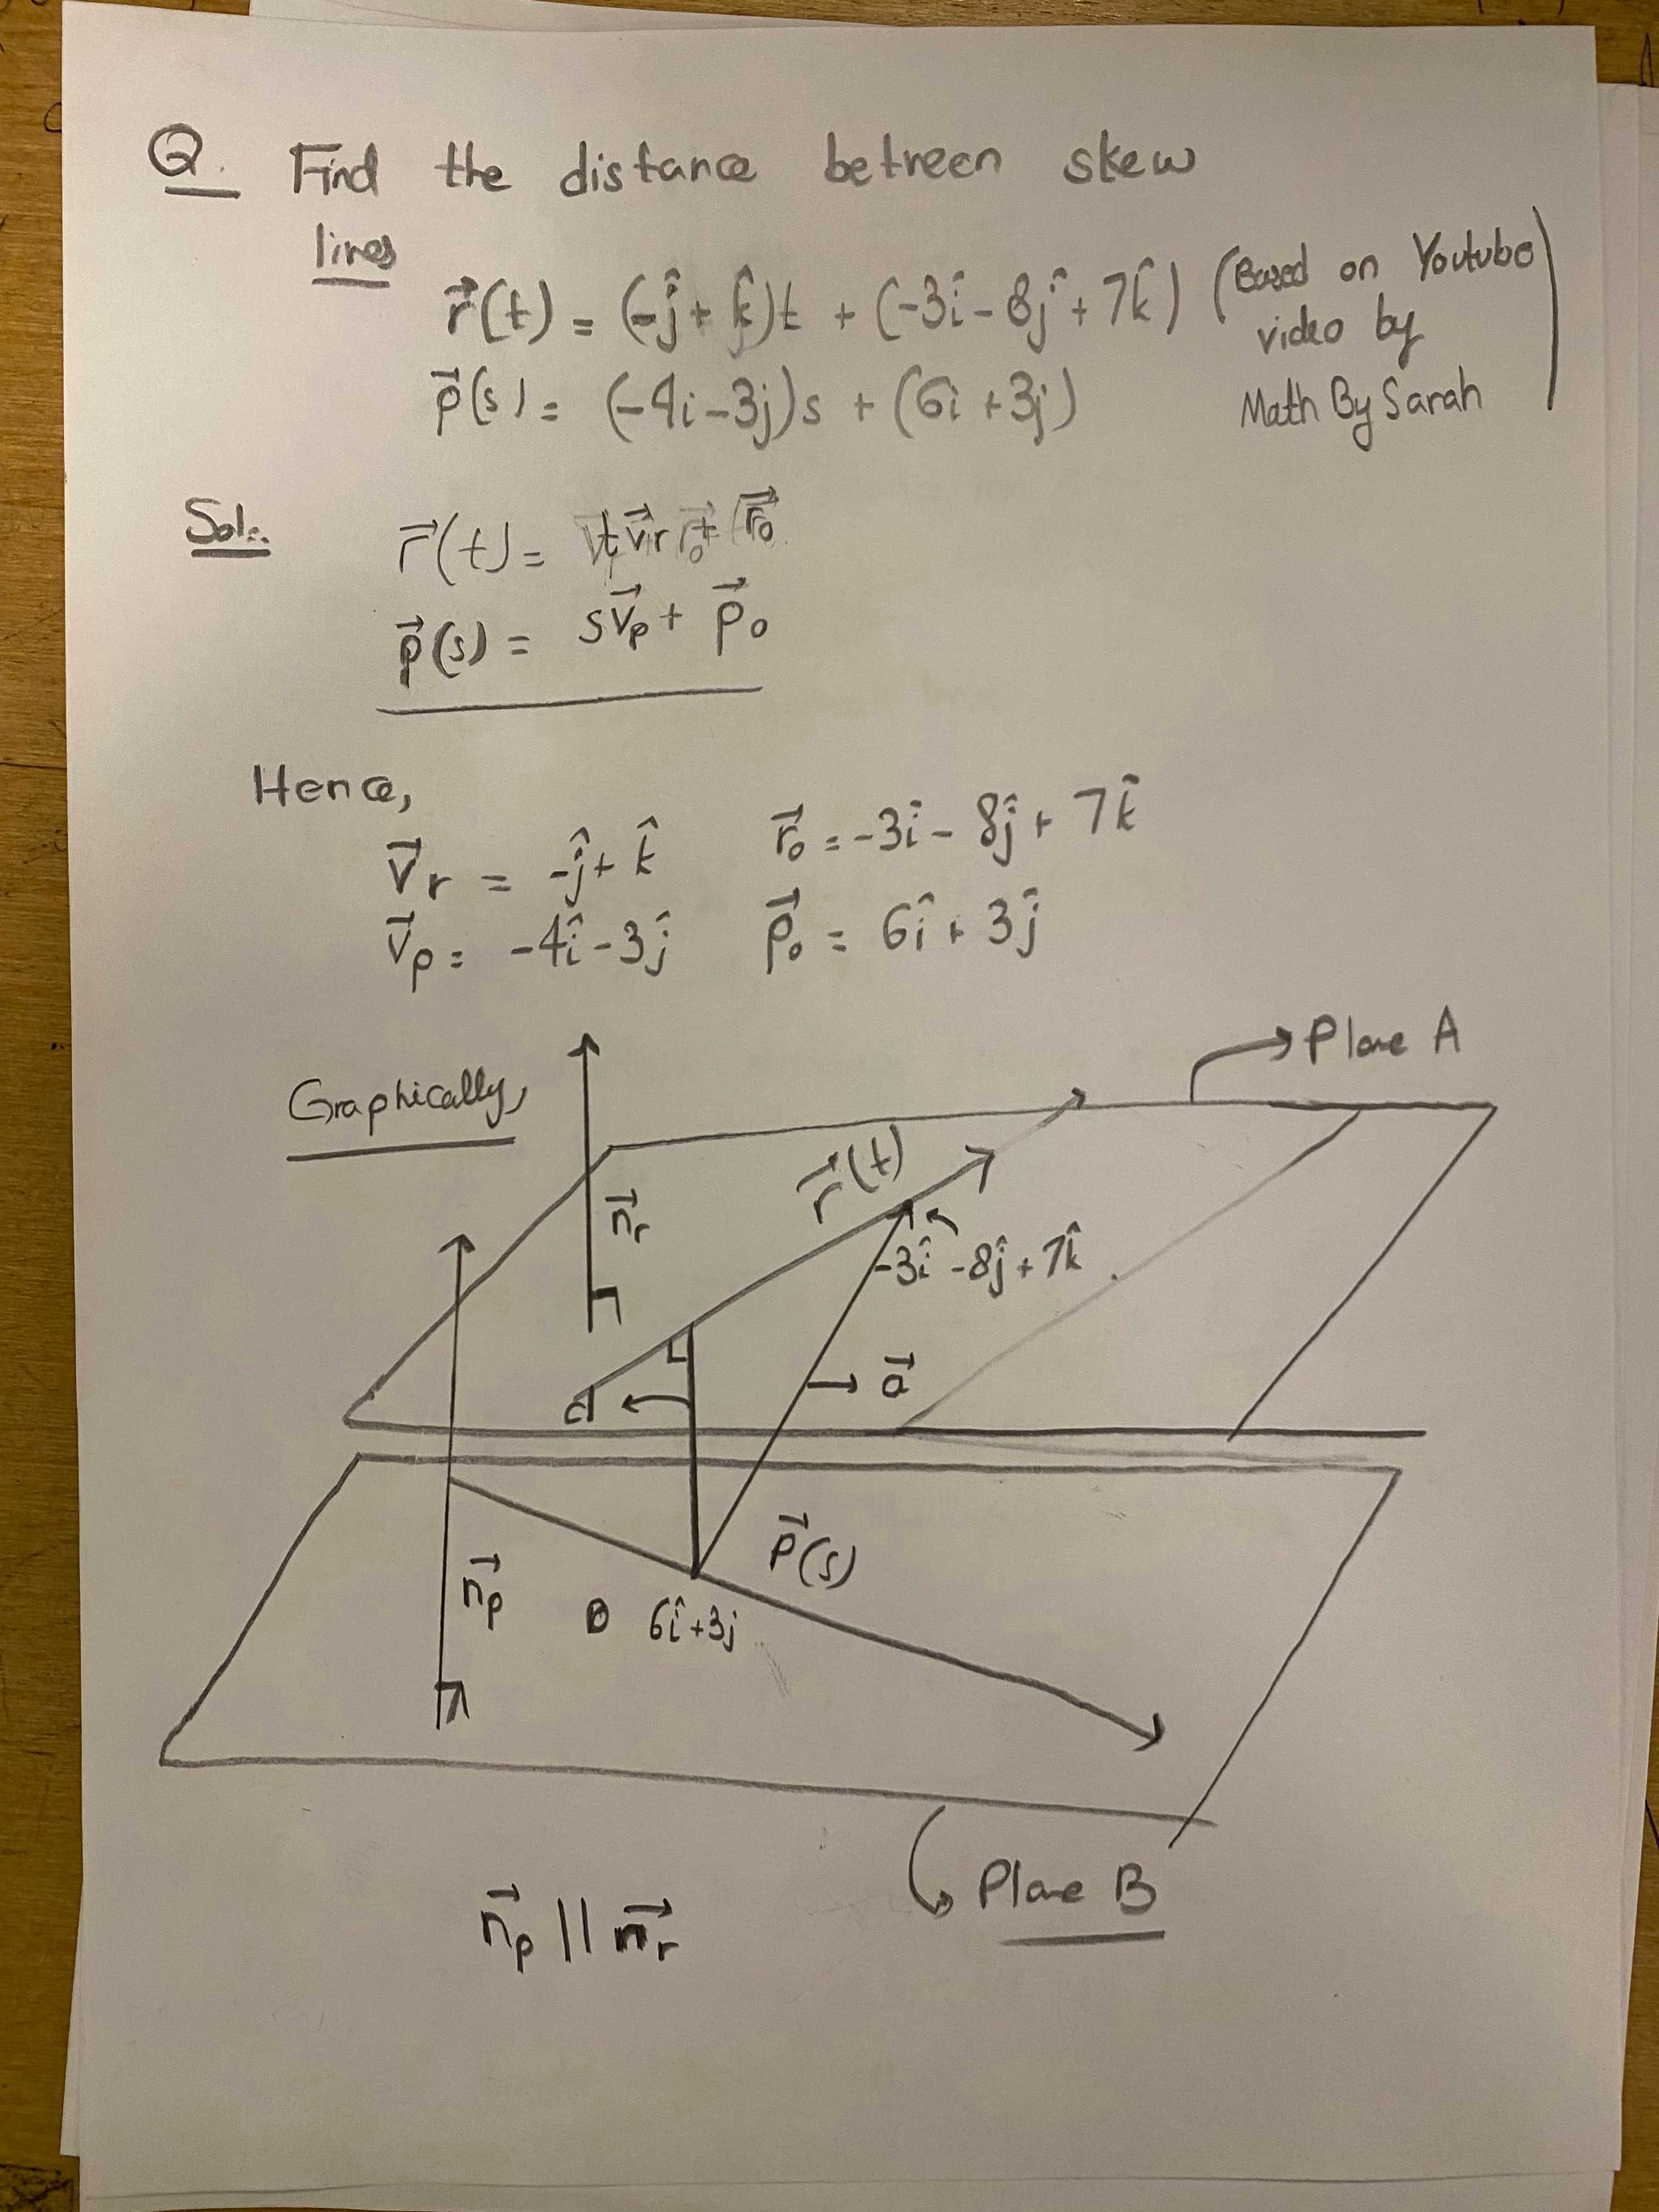 Q. Find the distance between skew
lines
r⃗(t) = (-ĵ + k̂)t + (-3î - 8ĵ + 7k̂) (Based on Youtube
video by
Math By Sarah)
p⃗(s) = (-4i - 3j)s + (6i + 3j)
Sol:.
r⃗(t) = tv⃗r + r⃗₀
p⃗(s) = sv⃗p + p⃗₀
Hence,
v⃗r = -ĵ + k̂ r⃗₀ = -3î - 8ĵ + 7k̂
v⃗p = -4î - 3ĵ p⃗₀ = 6î + 3ĵ
Plane A
Graphically,
r⃗(t)
n⃗r
-3î - 8ĵ + 7k̂
a⃗
d
p⃗(s)
n⃗p
6î + 3j
Plane B
n⃗p || n⃗r